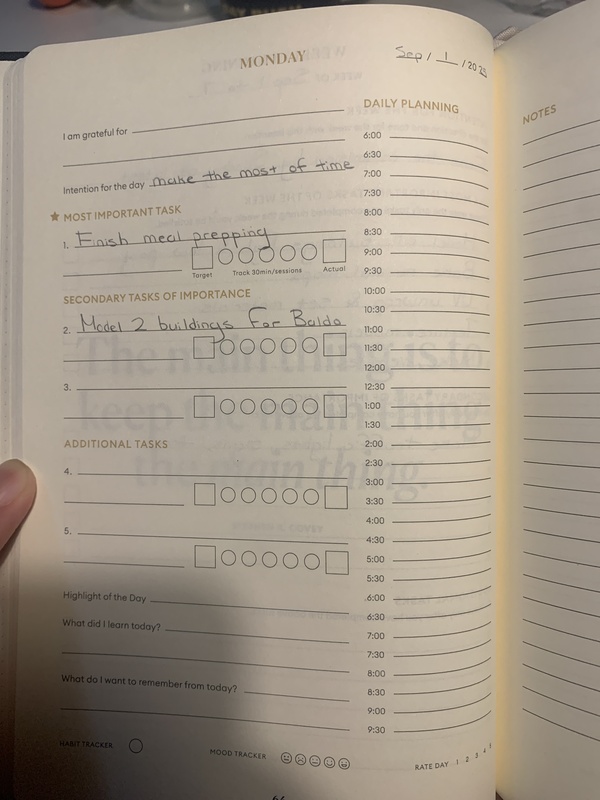 MONDAY
Sep / 1 / 2025
I am grateful for
Intention for the day make the most of time
MOST IMPORTANT TASK
1. Finish meal prepping
Target Track 30min/sessions Actual
SECONDARY TASKS OF IMPORTANCE
2. Model 2 buildings For Balda
3.
ADDITIONAL TASKS
4.
5.
Highlight of the Day
What did I learn today?
What do I want to remember from today?
HABIT TRACKER
MOOD TRACKER
DAILY PLANNING
6:00
6:30
7:00
7:30
8:00
8:30
9:00
9:30
10:00
10:30
11:00
11:30
12:00
12:30
1:00
1:30
2:00
2:30
3:00
3:30
4:00
4:30
5:00
5:30
6:00
6:30
7:00
7:30
8:00
8:30
9:00
9:30
RATE DAY 1 2 3 4 5
NOTES